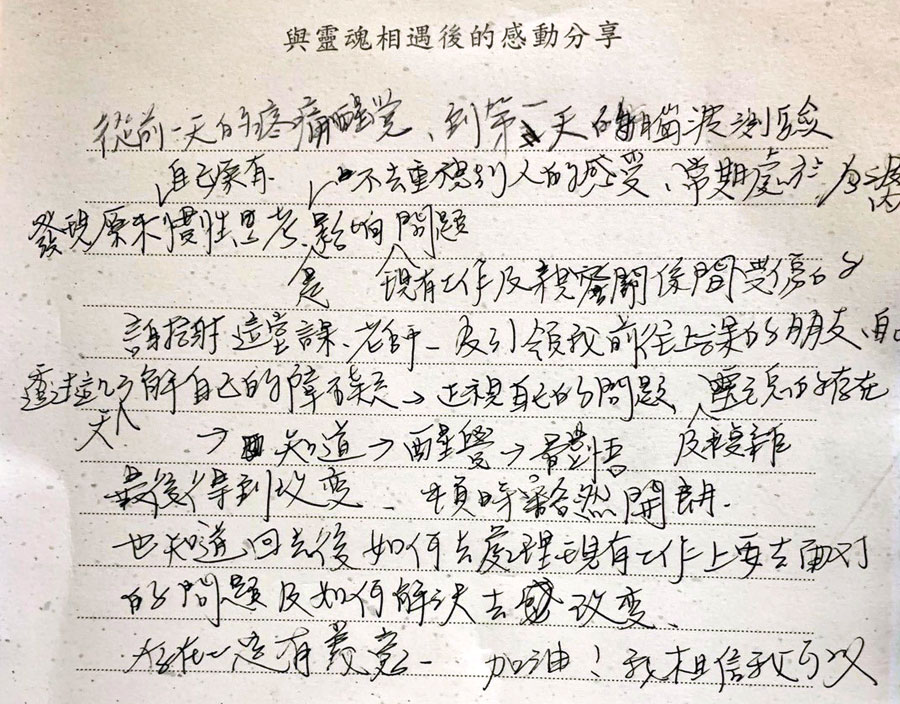 與靈魂相遇後的感動分享
從前一天的疼痛醒觉、到第一天的腦波測驗
自己原有 不去重視別人的感受、常期處於
發現原來慣性思考影响問題
是 現有工作及親密關係間受傷
謝謝這堂課、老師、及引領我前往上課的朋友、
透過了解自己的障礙→正視自己的問題、靈魂的存在
天 → 知道→醒覺→體悟。 及複雜
最後得到改变、頓時豁然開朗.
也知道回去後如何去處理現有工作上要去面对
的問題及如何解決去改变、
存在一定有義意、加油！我相信我可以